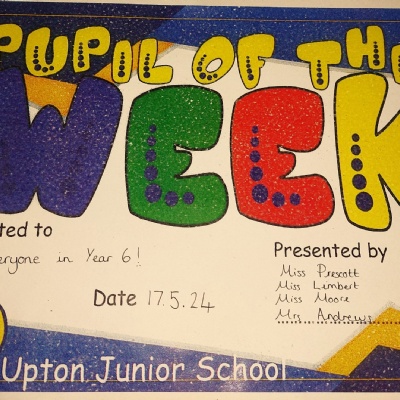 PUPIL OF THE
WEEK
ted to
eryone in Year 6!
Presented by
Miss Prescott
Miss Lambert
Miss Moore
Mrs Andrews
Date 17.5.24
Upton Junior School